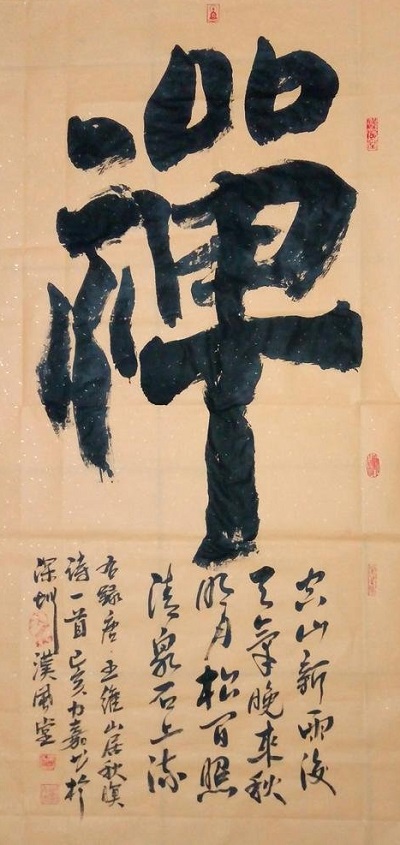 禪
空山新雨後
天氣晚来秋
明月松间照
清泉石上流
右録唐·王維山居秋暝
诗一首己亥力嘉书於
深圳漢風堂